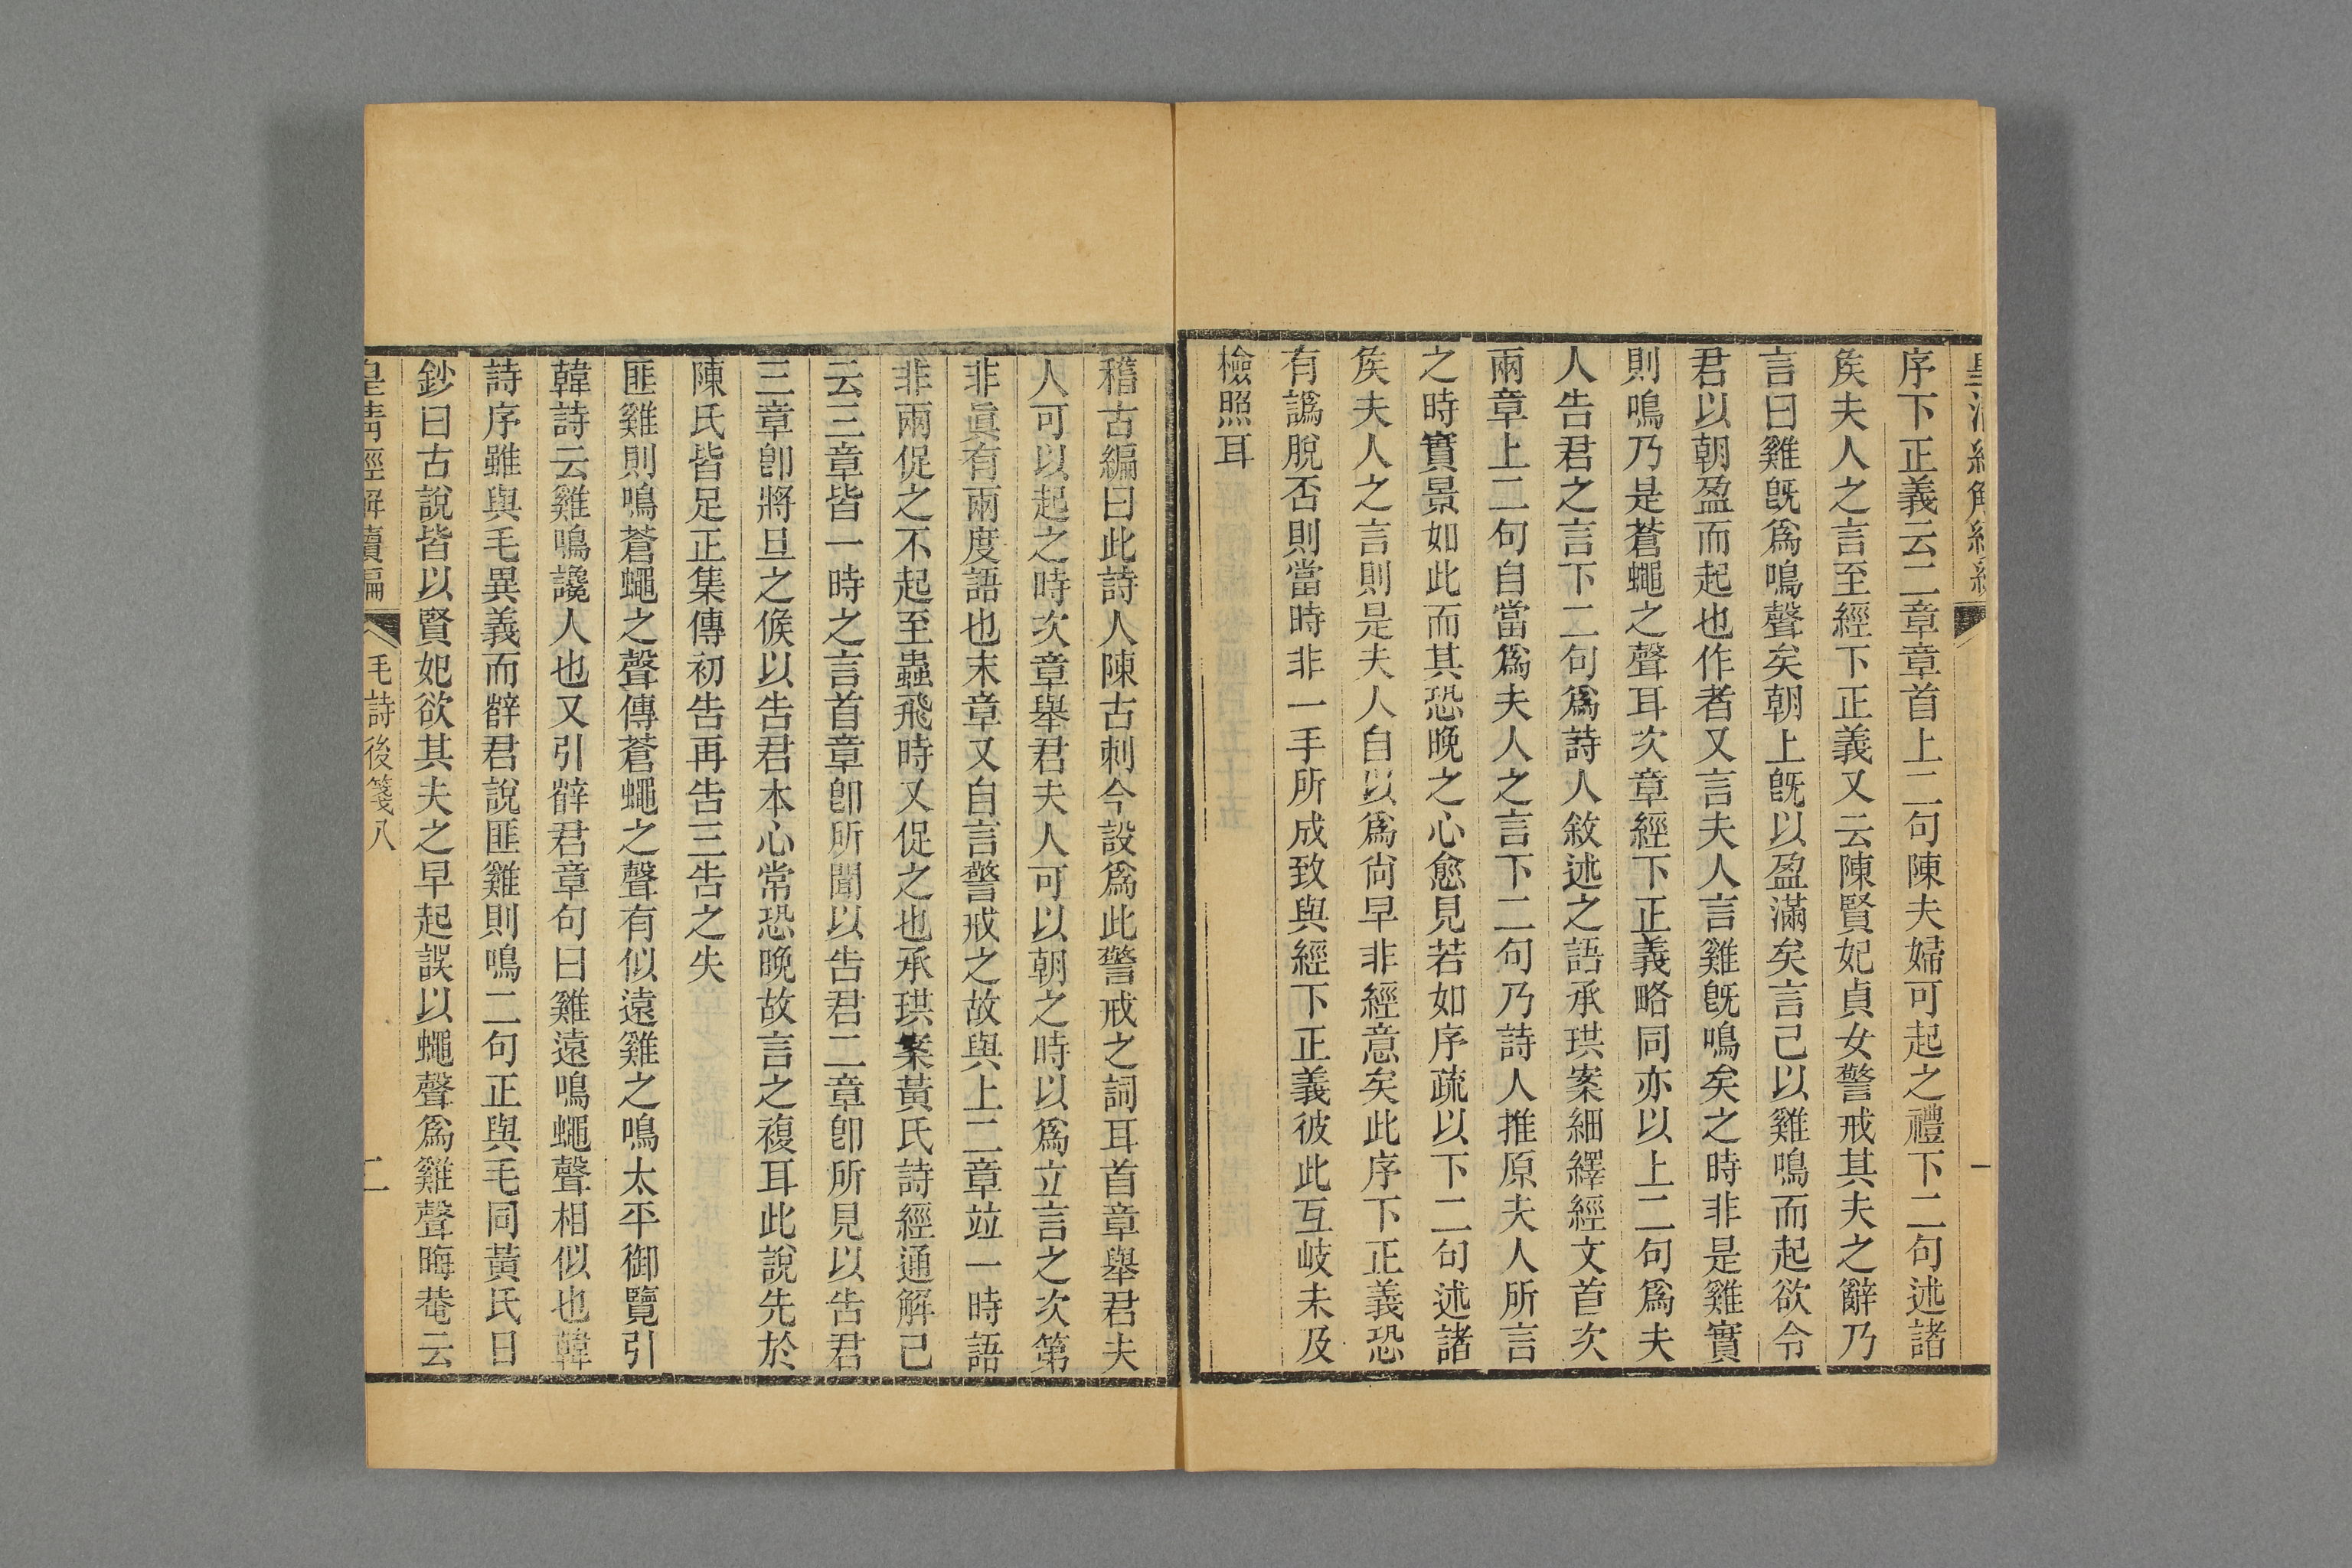 序下正義云二章章首上二句陳夫婦可起之禮下二句述諸
矦夫人之言至經下正義又云陳賢妃貞女警戒其夫之辭乃
言曰雞旣爲鳴聲矣朝上旣以盈滿矣言己以雞鳴而起欲令
君以朝盈而起也作者又言夫人言雞旣鳴矣之時非是雞實
則鳴乃是蒼蠅之聲耳次章經下正義略同亦以上二句爲夫
人告君之言下二句爲詩人敘述之語承珙案細繹經文首次
兩章上二句自當爲夫人之言下二句乃詩人推原夫人所言
之時實景如此而其恐晚之心愈見若如序疏以下二句述諸
矦夫人之言則是夫人自以爲尙早非經意矣此序下正義恐
有譌脫否則當時非一手所成致與經下正義彼此互岐未及
檢照耳
稽古編曰此詩人陳古刺今設爲此警戒之詞耳首章舉君夫
人可以起之時次章舉君夫人可以朝之時以爲立言之次第
非眞有兩度語也末章又自言警戒之故與上二章竝一時語
非兩促之不起至蟲飛時又促之也承珙案黃氏詩經通解已
云三章皆一時之言首章卽所聞以告君二章卽所見以告君
三章卽將旦之候以告君本心常恐晚故言之複耳此說先於
陳氏皆足正集傳初告再告三告之失
匪雞則鳴蒼蠅之聲傳蒼蠅之聲有似遠雞之鳴太平御覽引
韓詩云雞鳴讒人也又引辥君章句曰雞遠鳴蠅聲相似也韓
詩序雖與毛異義而辥君說匪雞則鳴二句正與毛同黃氏日
鈔曰古說皆以賢妃欲其夫之早起誤以蠅聲爲雞聲晦菴云
皇清經解續編 毛詩後箋八 二